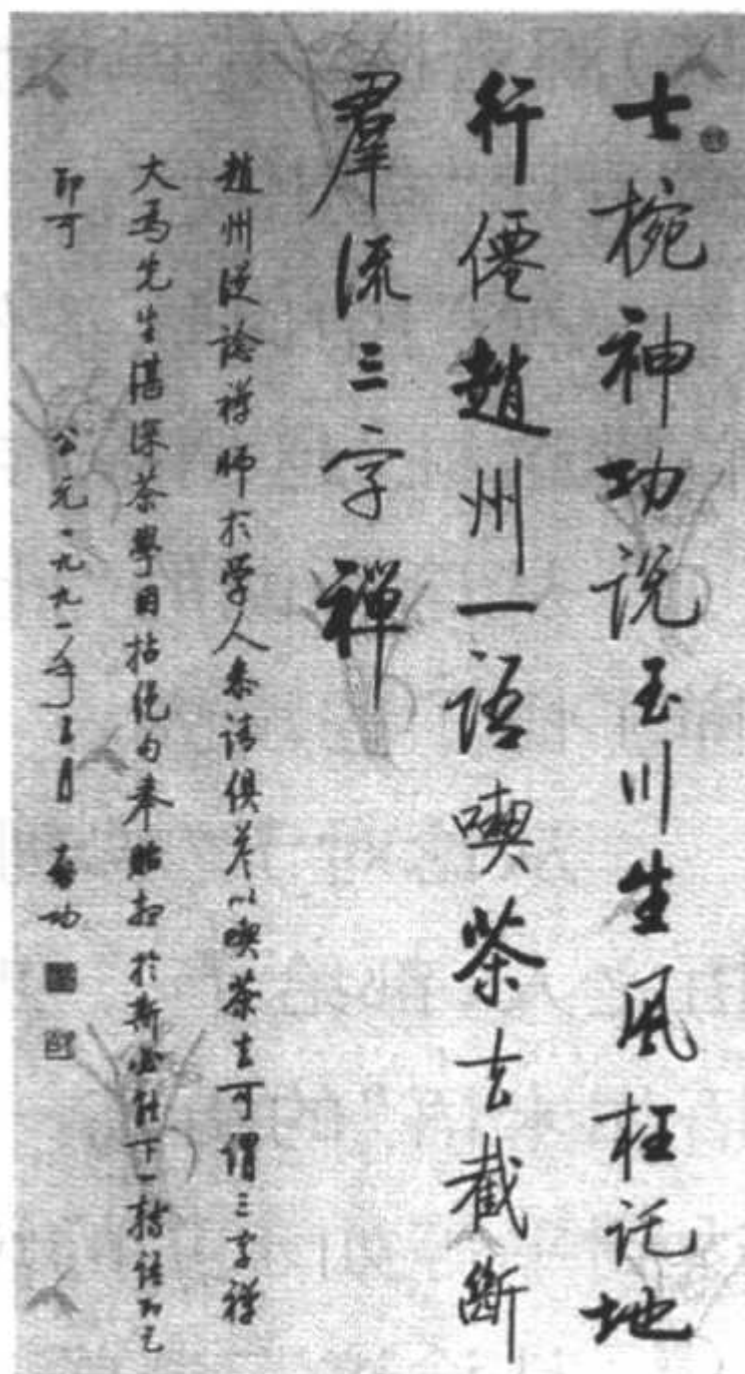 七椀神功説玉川生風枉託地
行僊趙州一語喫茶去截斷
羣流三字禪
趙州從諗禅師於学人参請俱答以喫茶去可謂三字禅
大为先生湛深茶學因拈絶句奉貽想於斯必能下一转語即乞
印可
公元一九九一年三月 啟功